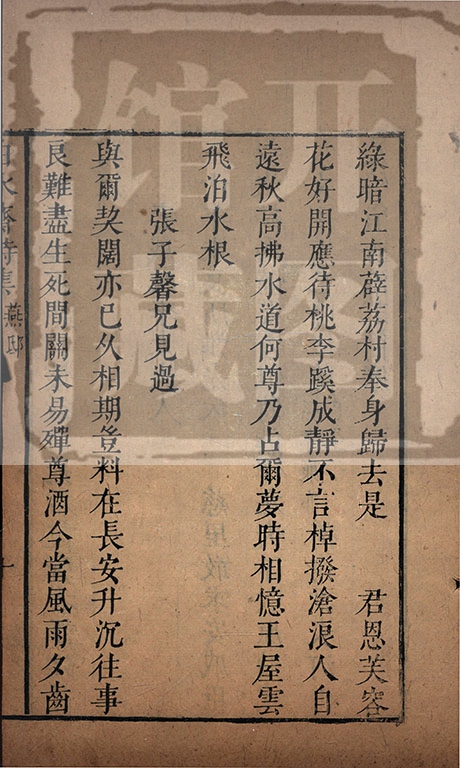 綠暗江南薜荔村奉身歸去是 君恩芙容
花好開應待桃李蹊成靜不言棹撥滄浪人自
遠秋高拂水道何尊乃占爾夢時相憶王屋雲
飛泊水根
張子馨兄見過
與爾契闊亦已久相期豈料在長安升沉往事
良難盡生死間關未易殫尊酒今當風雨夕齒
水齋詩集 燕邸
开 图
馆 藏